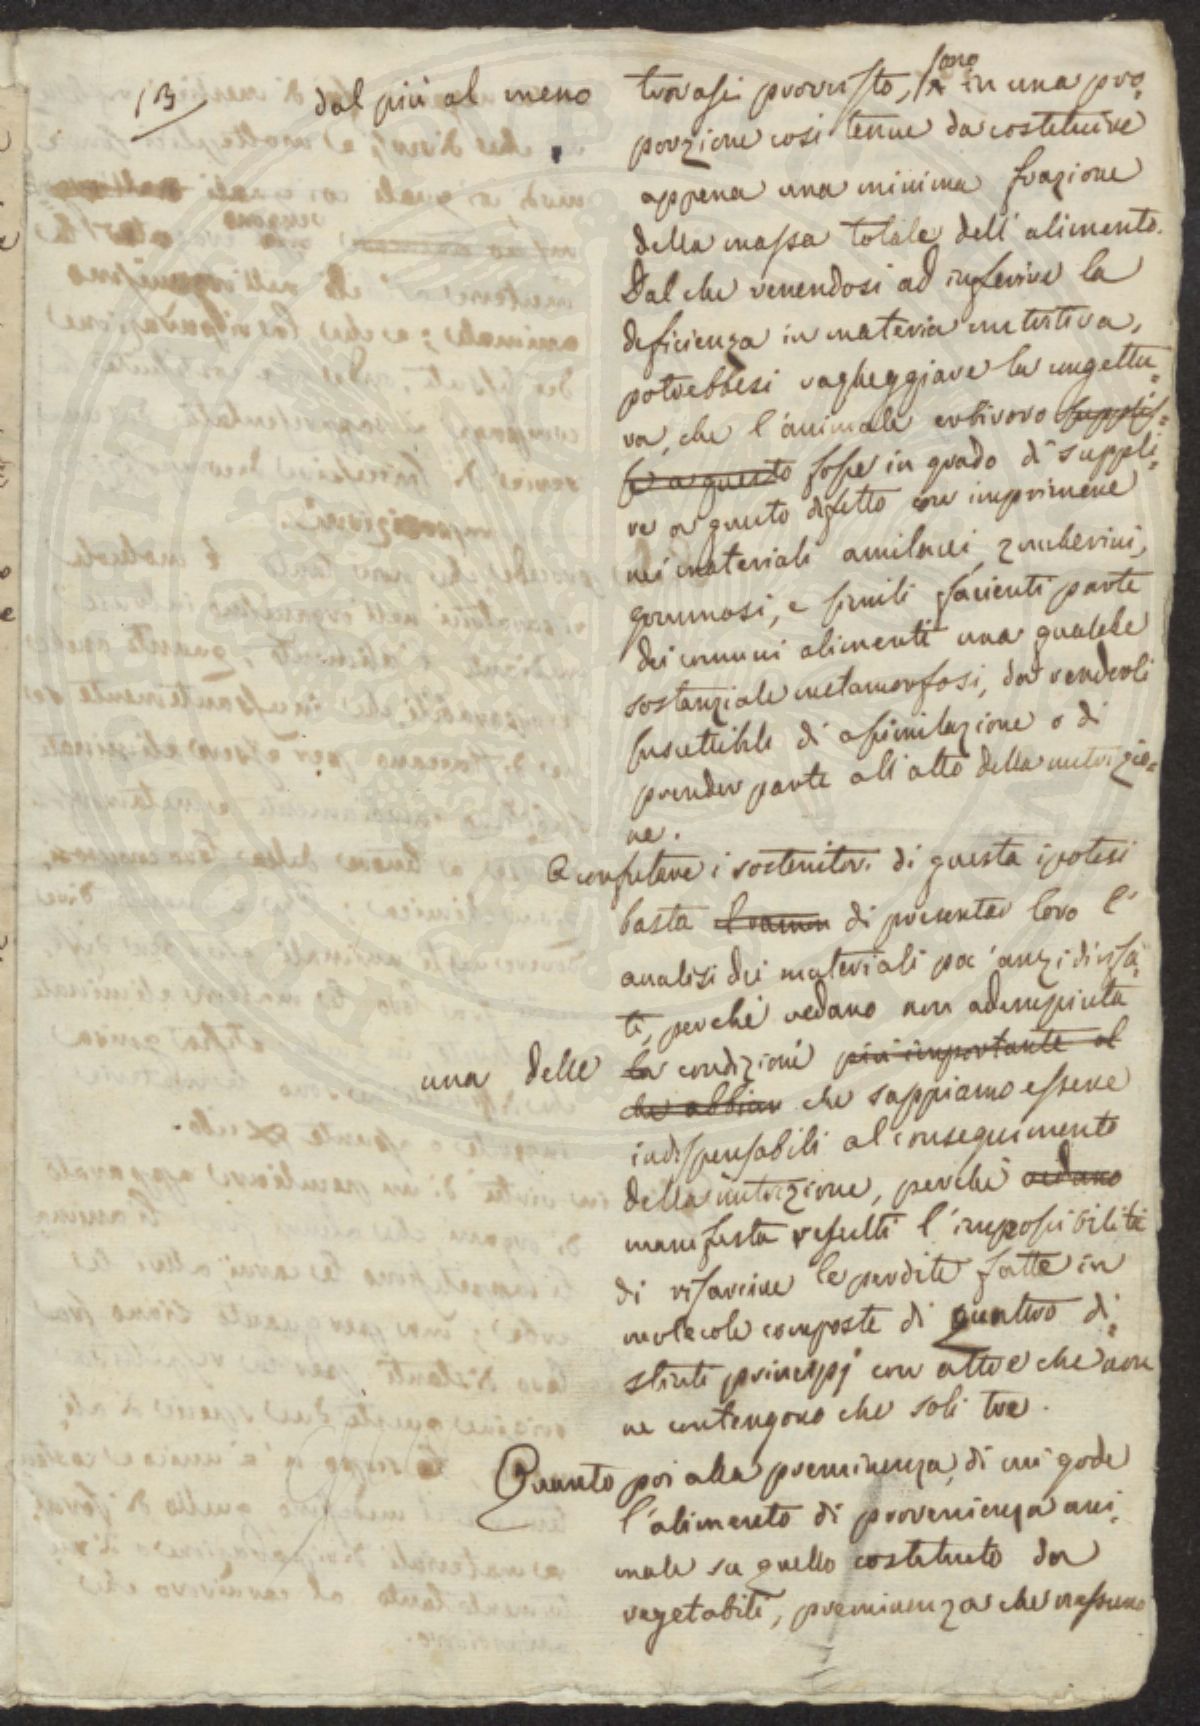 13
dal più al meno
trovasi provvisto, sono in una pro-
porzione così tenue da costituire
appena una minima frazione
della massa totale dell'alimento.
Dal che venendosi ad inferire la
deficienza in materia nutritiva,
potrebbesi vagheggiare la congettu-
ra, che l'animale erbivoro supplis-
se a questo fosse in grado di suppli-
re a questo difetto con imprimere
nei materiali amilacei, zuccherini,
gommosi, e simili facienti parte
dei comuni alimenti una qualche
sostanziale metamorfosi, da renderli
suscettibili di assimilazione o di
prender parte all'atto della nutrizio-
ne.
A confutare i sostenitori di questa ipotesi
basta di presentar loro l'
analisi dei materiali poc'anzi divisa-
ti, perché vedano non adempiuta
una delle
la condizioni più importante al
che abbian che sappiamo essere
indispensabili al conseguimento
della nutrizione, perché vedano
manifesta resulti l'impossibilità
di risarcire le perdite fatte in
molecole composte di quattro di-
stinti principj con altre che non
ne contengono che soli tre.
Quanto poi alla preminenza, di cui gode
l'alimento di provenienza ani-
male su quello costituito da
vegetabili, preminenza che nessuno